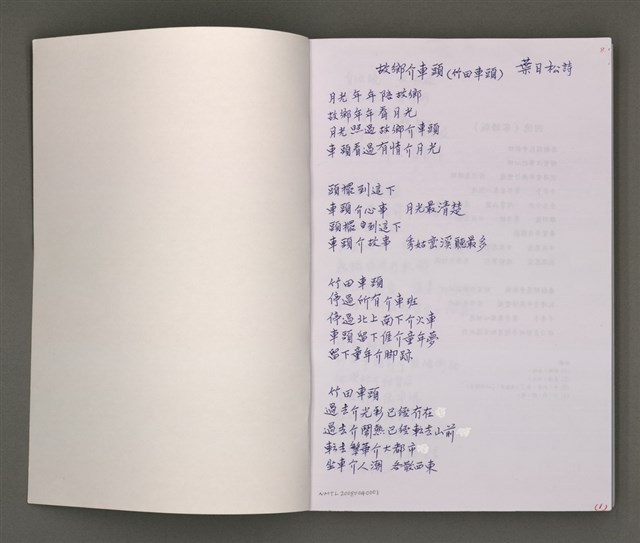 故鄉介車頭(竹田車頭) 葉日松詩
月光年年陪故鄉
故鄉年年看月光
月光照過故鄉介車頭
車頭看過有情介月光
頭擺到這下
車頭介心事 月光最清楚
頭擺到這下
車頭介故事 秀姑巒溪聽最多
竹田車頭
停過所有介車班
停過北上南下介火車
車頭留下𠊎介童年夢
留下童年介腳跡
竹田車頭
過去介光彩已經冇在
過去介鬧熱已經轉去山前
轉去繁華介大都市
坐車介人潮 各散西東
(1)